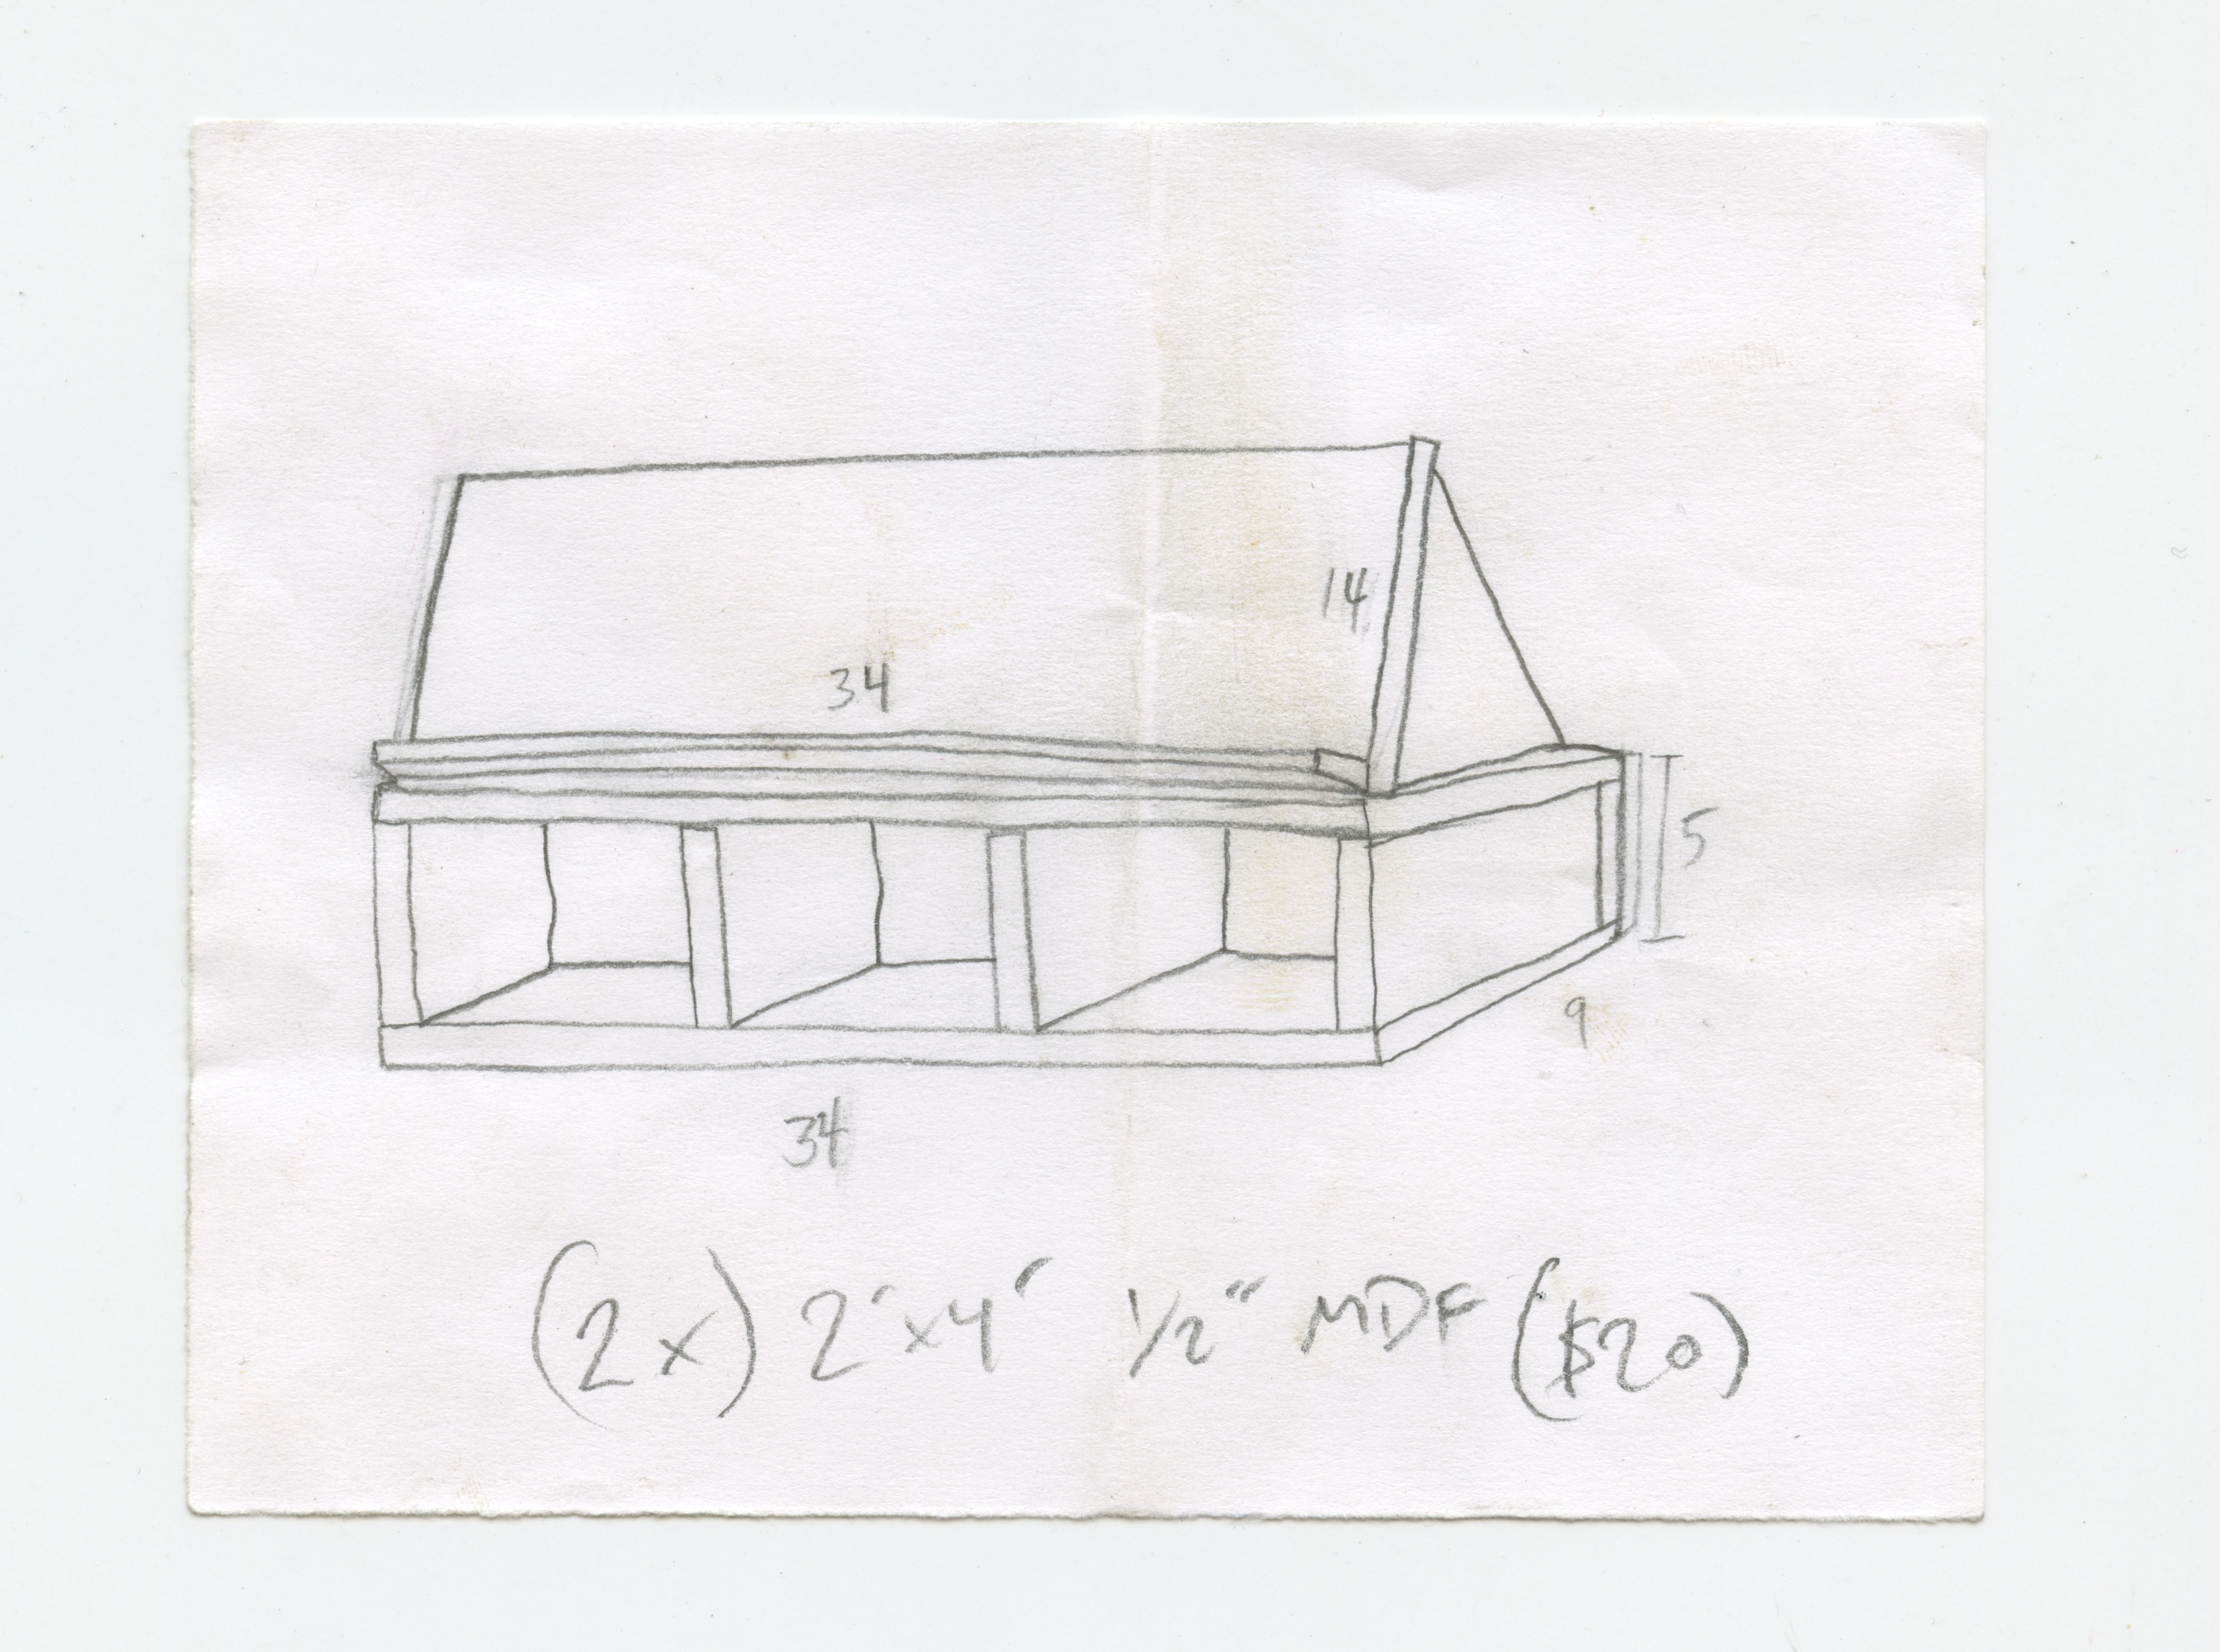 14
34
5
9
34
(2x) 2'x4' 1/2" MDF ($20)